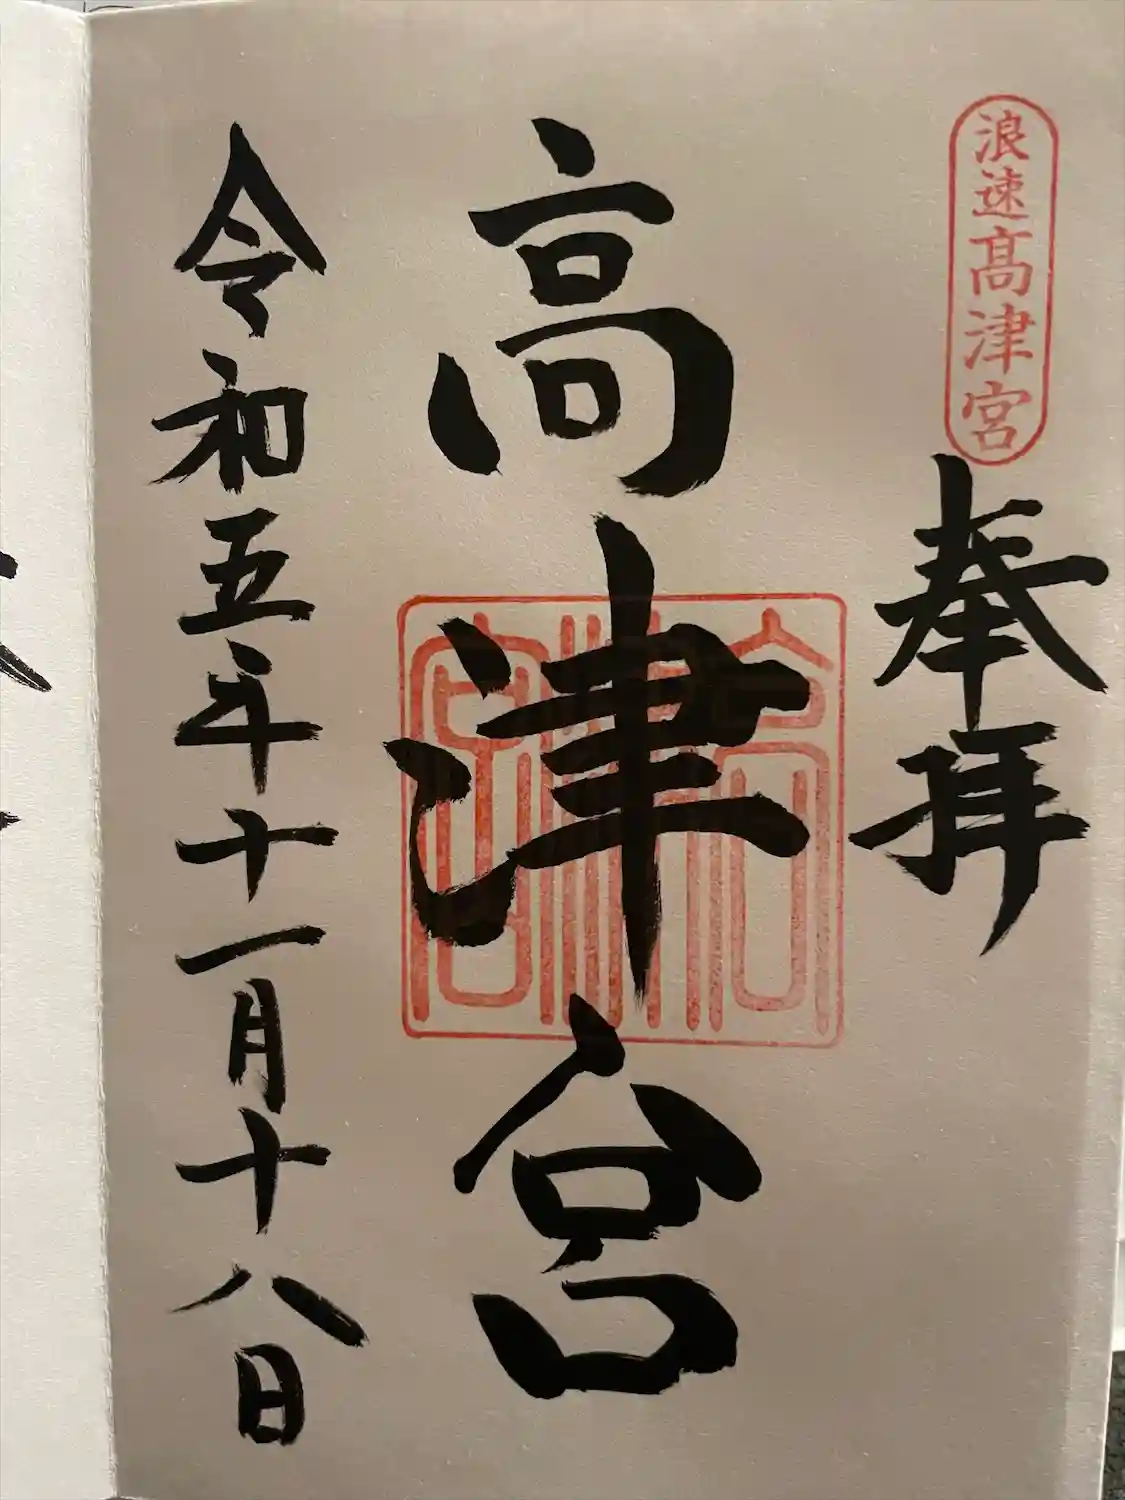 浪速高津宮
奉拝
高津宮
高津宮
令和五年十一月十八日